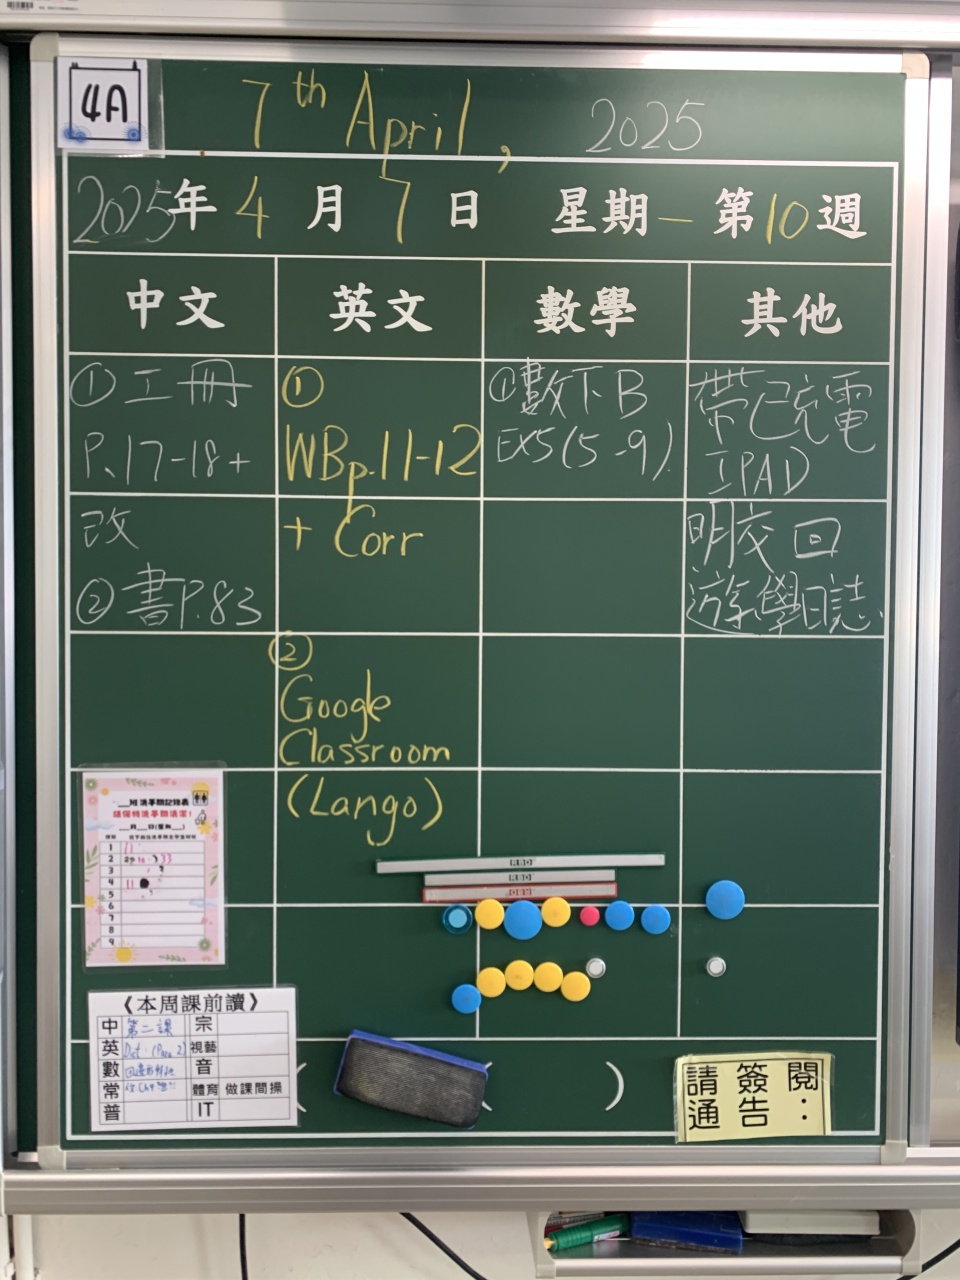 4A
7th April, 2025
2025年4月7日 星期一 第10週
中文 英文 數學 其他
①工冊
P.17-18+
改
②書P.83
①
WBp.11-12
+ Corr
②
Google
Classroom
(Lango)
①數下B
EX5(5-9)
帶已充電
IPAD
明交回
遊學日誌
請保持洗手間清潔!
1
2
3
4
5
6
7
8
9
《本周課前讀》
中 第二課 宗
英 視藝
數 音
常 體育 做課間操
普 IT
( )
請簽閱
通告: